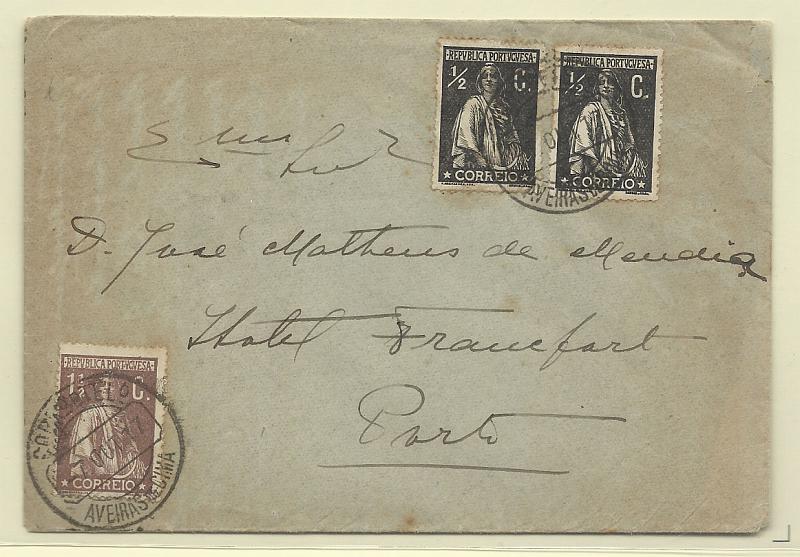 REPUBLICA PORTUGUESA
½ C.
CORREIO
REPUBLICA PORTUGUESA
½ C.
CORREIO
AVEIRAS
Exmo Snr
D. José Matheus de Mendia
Hotel Francfort
Porto
REPUBLICA PORTUGUESA
1½ C.
CORREIO
AVEIRAS DE CIMA